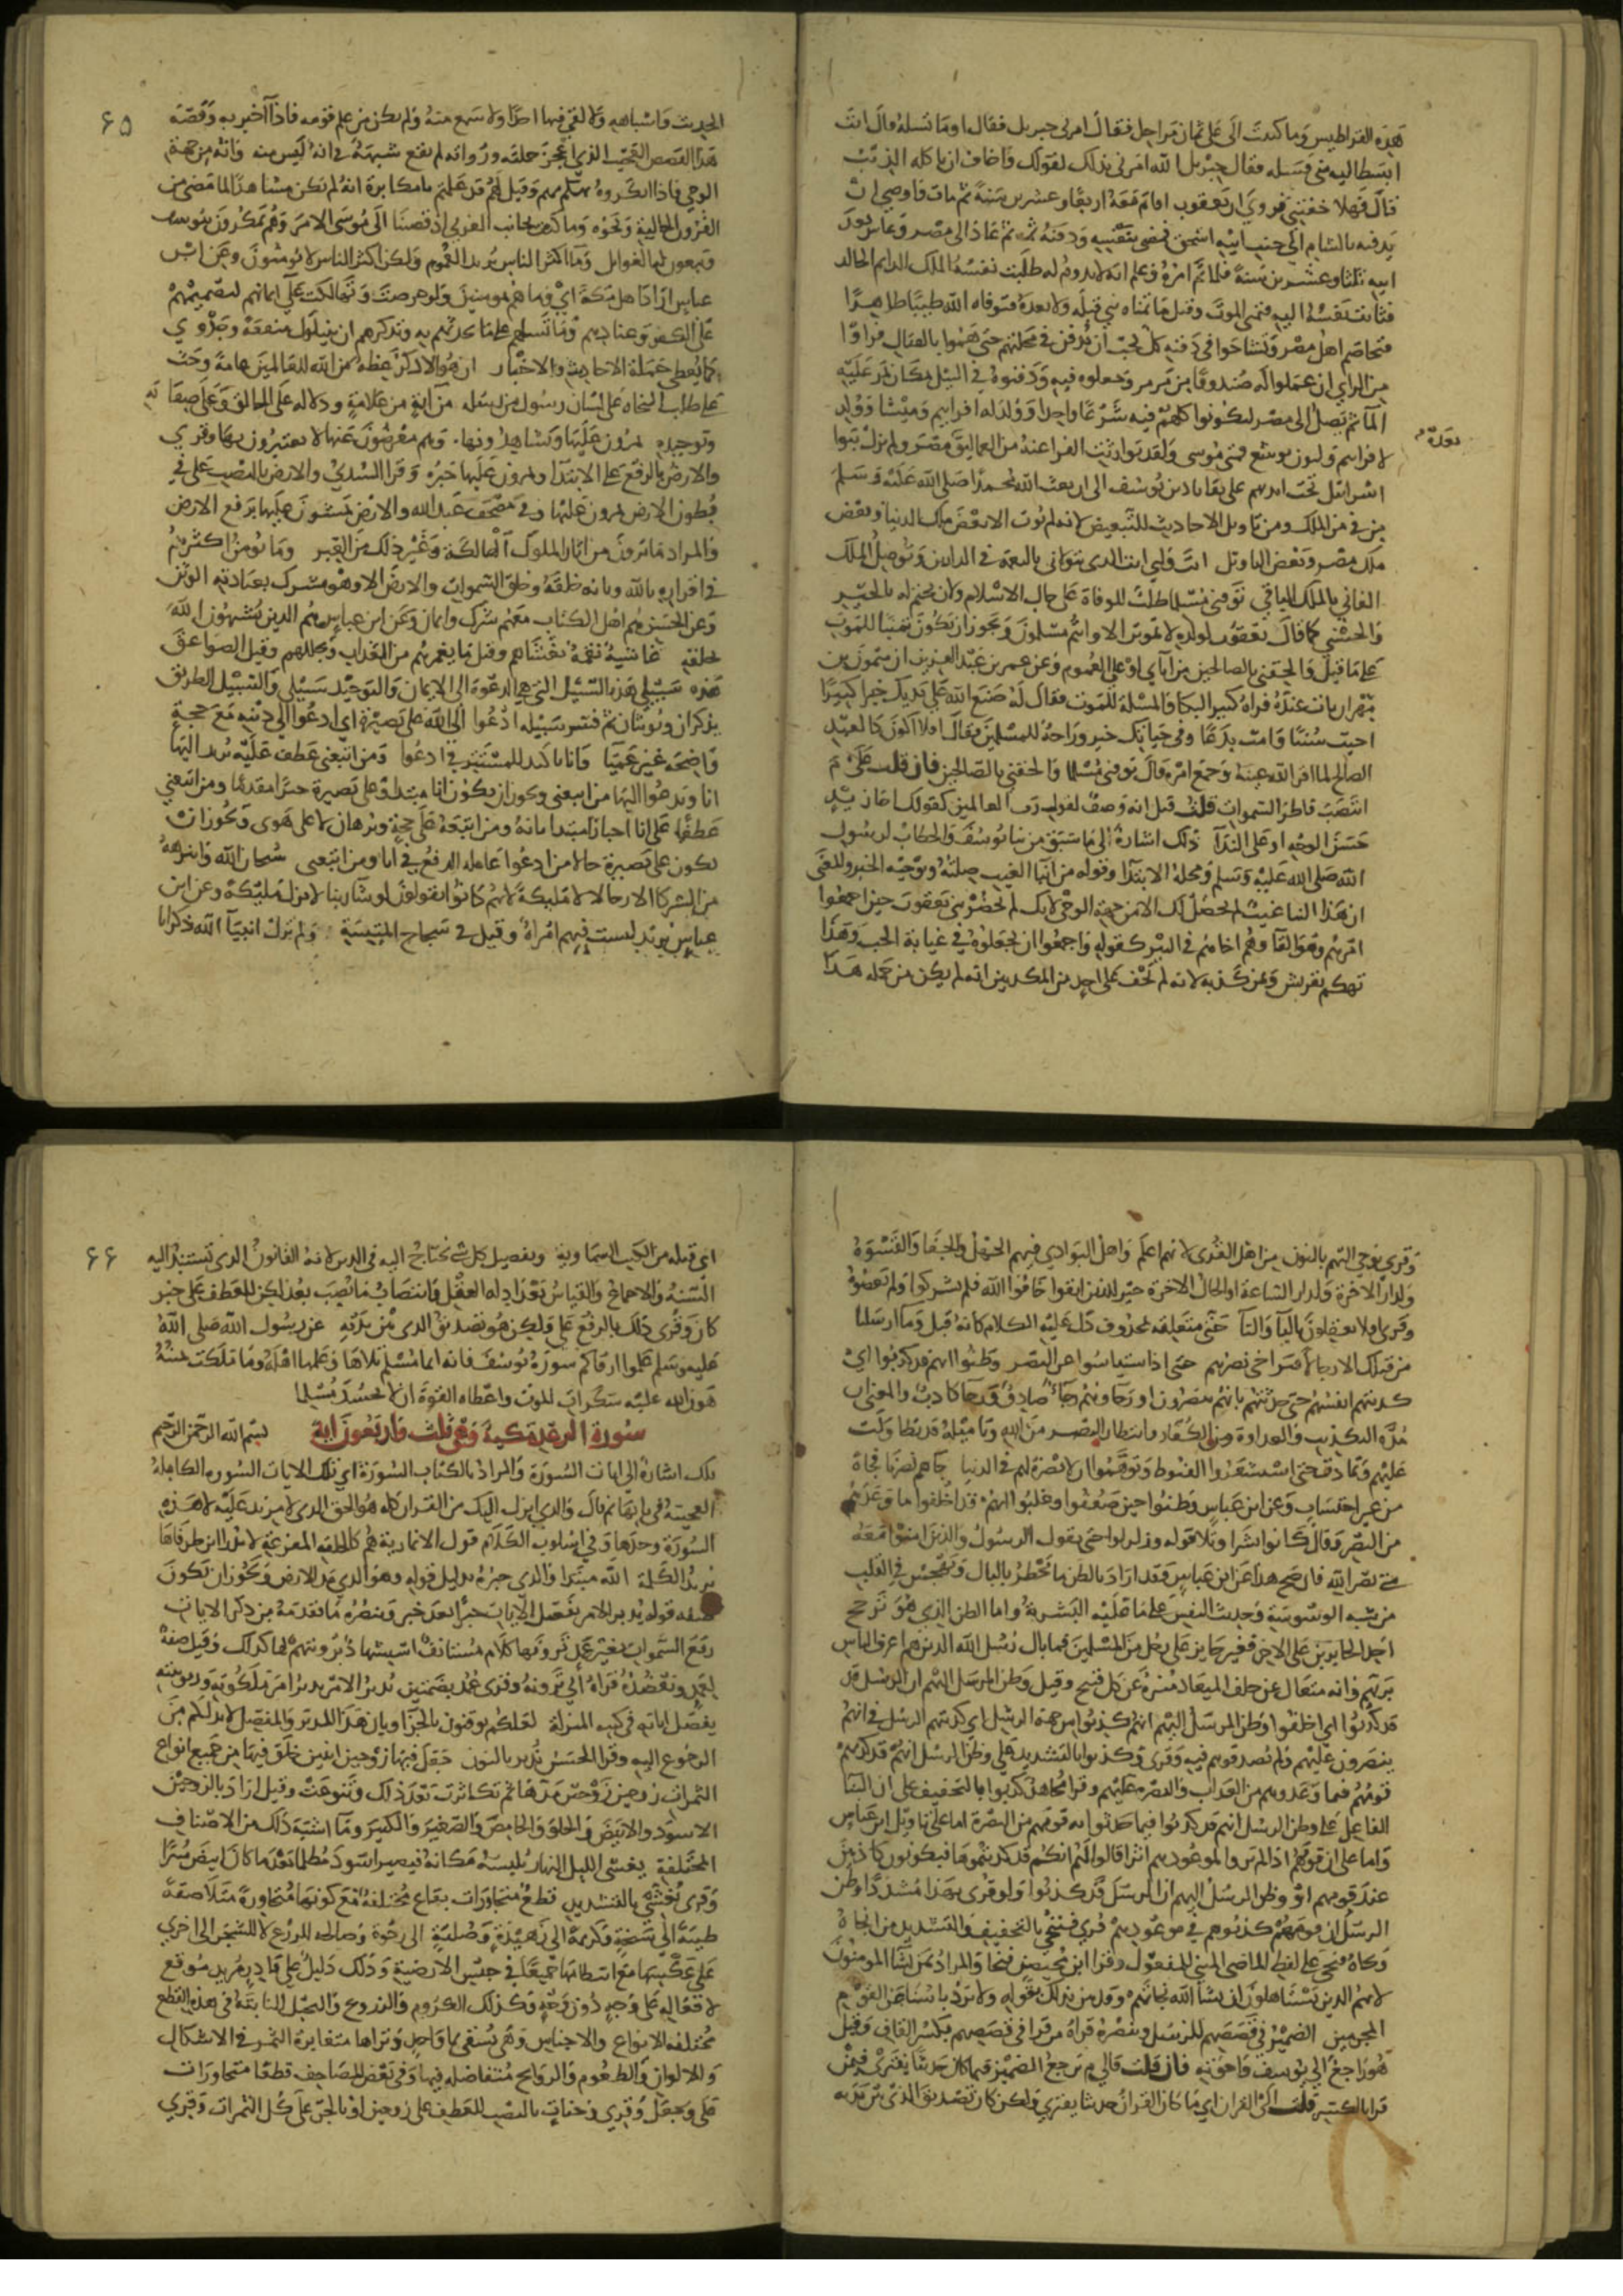 هذه القراطيس وما كتبت الي علي ثمان مراحل فقال امرني جبريل فقال اوما تسله قال انت
ابسط اليه مني فسله فقال جبريل الله امرني بذلك لقولك واخاف ان ياكله الذئب
قال فهلا خفتني فروي ان يعقوب اقام معه اربعا وعشرين سنة ثم مات فاوصي ان
يدفنه بالشام الي جنب ابيه اسحق فمضي بنفسه ودفنه ثم عاد الي مصر وعاش بعد
ابيه ثلثا وعشرين سنة فلما تم امره وعلم انه لا يدوم له طلبت نفسه الملك الدايم الخالد
فتاقت نفسه اليه فتمني الموت وقيل ما تمناه نبي قبله ولا بعده فتوفاه الله طيبا طاهرا
فتخاصم اهل مصر وتشاحوا في دفنه كل يحب ان يدفن في محلتهم حتي هموا بالقتال فراوا
من الراي ان عملوا له صندوقا من مرمر وجعلوه فيه ودفنوه في النيل بمكان يمر عليه
الما ثم يصل الي مصر ليكونوا كلهم فيه شرعا واحدا وولد له افراييم وميشا وولد
لافراييم نون ولنون يوشع فتي موسي ولقد توارثت الفراعنة من العماليق مصر ولم يزل بنوا
بعده
اسرائيل تحت ايديهم علي بقايا دين يوسف الي ان بعث الله محمدا صلي الله عليه وسلم
من في من الملك ومن تاويل الاحاديث للتبعيض لانه لم يؤت الا بعض ملك الدنيا وبعض
ملك مصر وبعض التاويل انت وليي انت الذي تتولاني بالنعمة في الدارين وتوصل الملك
الفاني بالملك الباقي توفني مسلما طلب للوفاة علي حال الاسلام ولان يختم له بالخير
والحسني كما قال يعقوب لولده لا تموتن الا وانتم مسلمون ويجوز ان يكون تمنيا للموت
علي ما قيل والحقني بالصالحين من اباي او علي العموم وعن عمر بن عبد العزيز ان ميمون بن
مهران بات عنده فراه كثير البكا والمسئلة للموت فقال له صنع الله علي يديك خيرا كثيرا
احييت سننا وامت بدعا وفي حياتك خير وراحة للمسلمين فقال افلا اكون كالعبد
الصالح لما اقر الله عينه وجمع امره قال توفني مسلما والحقني بالصالحين فان قلت علي م
انتصب فاطر السموات قلت قيل انه وصف لقوله رب العالمين كقولك اخا زيد
حسن الوجه او علي الندآ ذلك اشارة الي ما سبق من نبا يوسف والخطاب لرسول
الله صلي الله عليه وسلم ومحله الابتدا وقوله من انبا الغيب صلته ونوحيه الخبر والمعني
ان هذا النبا غيب لم يحصل لك الا من جهة الوحي لانك لم تحضر بني يعقوب حين اجمعوا
امرهم وهو القاوهم اخاهم في البير كقوله واجمعوا ان يجعلوه في غيابة الجب وهذا
تهكم بقريش وبمن كذبه لانه لم يخف علي احد من المكذبين انه لم يكن من حملة هذا
الحديث واشباهه ولا لقي فيها احدا ولا سمع منه ولم يكن من علم قومه فاذا اخبر به وقصه
هذا القصص العجيب الذي اعجز حملته ورواته لم يقع شبهة في انه ليس منه وانه من جهة
الوحي فاذا انكروه تهكم بهم وقيل لهم قد علمتم يا مكابرة انه لم يكن مشاهدا لما مضي من
القرون الخالية ونحوه وما كنت بجانب الغربي اذ قضينا الي موسي الامر وهم يمكرون بيوسف
ويبغون له الغوايل وما اكثر الناس يريد العموم ولكن اكثر الناس لا يؤمنون وعن ابن
عباس اراد اهل مكة اي وما هم بمومنين ولو حرصت وتهالكت علي ايمانهم لتصميمهم
علي الكفر وعنادهم وما تسالهم علي ما تحدثهم به وتذكرهم ان ينيلوك منفعة وجدوي
كما يعطي حملة الاحاديث والاخبار ان هو الا ذكر عظة من الله للعالمين عامة وحث
علي طلب النجاة علي لسان رسول من رسله من آية من علامة ودلالة علي الخالق وعلي صفاته
وتوحيده يمرون عليها ويشاهدونها. وهم معرضون عنها لا يعتبرون بها وقري
والارض بالرفع علي الابتدآ ويمرون عليها خبره وقرا السدي والارض بالنصب علي في
ويطون الارض يمرون عليها وفي مصحف عبد الله والارض يمشون عليها برفع الارض
والمراد ما يرون من اثار الملوك الهالكة وغير ذلك من العبر وما يؤمن اكثرهم
في اقراره بالله وبانه خلقه وخلق السموات والارض الا وهو مشرك بعبادته الوثن
وعن الحسن هم اهل الكتاب معهم شرك وايمان وعن ابن عباس هم الذين يشبهون الله
بخلقه غاشية نقمة تغشاهم وقيل ما يغمرهم من العذاب ويجللهم وقيل الصواعق
هذه سبيلي هذه السبيل التي هي الدعوة الي الايمان والتوحيد سبيلي والسبيل الطريق
يذكران ويؤنثان ثم فسر سبيله ادعوا الي الله علي بصيرة اي ادعوا الي دينه مع حجة
واضحة غير عميا وانا تاكيد للمستتر في ادعوا ومن اتبعني عطف عليه يريد اليها
انا ويدعوا اليها من اتبعني ويجوز ان يكون انا مبتدا وعلي بصيرة خبرا مقدما ومن اتبعني
عطفا علي انا اخبارا مبتدا بانه ومن اتبعه علي حجة وبرهان لا علي هوي ويجوز ان
يكون علي بصيرة حالا من ادعوا عاملة الرفع في انا ومن اتبعني سبحان الله وانزهه
من الشركا الا رجالا لا مليكة لانهم كانوا يقولون لو شآ ربنا لانزل مليكة وعن ابن
عباس يريد ليست فيهم امراة وقيل في سجاح المتنبية : ولم تزل انبيآ الله ذكرانا
۶۵
وقري نوحي اليهم بالنون من اهل القري لانهم اعلم واهل البوادي فيهم الجهل والجفا والقسوة
ولدار الاخرة ولدار الساعة او الحال الاخرة خير للذين اتقوا خافوا الله فلم يشركوا ولم يعصوه
وقري افلا تعقلون باليآ والتآ حتي متعلقة بمحذوف دل عليه الكلام كانه قيل وما ارسلنا
من قبلك الا رجالا فتراخي نصرهم حتي اذا استياسوا عن النصر وظنوا انهم قد كذبوا اي
كذبتهم انفسهم حين حدثتهم بانهم ينصرون او رجاوهم رجآ صادق ورجا كاذب والمعني ان
مدة التكذيب والعداوة من الكفار وانتظار النصر من الله وتاميله قد تطاولت
عليهم وتمادت حتي استشعروا القنوط وتوهموا ان لا نصرة لهم في الدنيا جاهم نصرنا فجاة
من غير احتساب وعن ابن عباس وظنوا حين ضعفوا وغلبوا انهم قد اخلفوا ما وعدهم
من النصر وقال كانوا بشرا وتلا قوله وزلزلوا حتي يقول الرسول والذين امنوا معه
متي نصر الله فان صح هذا عن ابن عباس فقد اراد بالظن ما يخطر بالبال ويهجس في القلب
من شبه الوسوسة وحديث النفس علي ما عليه البشرية واما الظن الذي هو ترجح
احد الجايزين علي الاخر فغير جايز علي رجل من المسلمين فما بال رسل الله الذين هم اعرف الناس
بربهم وانه متعال عن خلف الميعاد منزه عن كل قبيح وقيل وظن المرسل اليهم ان الرسل قد
كذبوا اي اخلفوا وظن المرسل اليهم انهم كذبوا من جهة الرسل اي كذبتهم الرسل في انهم
ينصرون عليهم ولم يصدقوهم فيه وقري وكذبوا بالتشديد علي وظن الرسل انهم قد كذبهم
قومهم فيما وعدوهم من العذاب والنصرة عليهم وقرا مجاهد كذبوا بالتخفيف علي ان البنا
الفاعل علي وظن الرسل انهم قد كذبوا فيما حدثوا به قومهم من النصرة اما علي تاويل ابن عباس
واما علي ان قومهم اذا لم يروا لموعودهم اثرا قالوا لهم انكم قد كذبتموها فيكونون كاذبين
عند قومهم او وظن المرسل اليهم ان الرسل قد كذبوا ولو قري بهذا مشددا وظن
الرسل ان قومهم كذبوهم في موعودهم قري فننجي بالتخفيف والتشديد من انجاه
ونجاه فنجي علي لفظ الماضي المبني للمفعول وقرا ابن محيصن فنجا والمراد بمن نشآ المومنون
لانهم الذين يستاهلون ان يشا الله نجاتهم وقد بين بذلك بقوله ولا يرد باسنا عن القوم
المجرمين الضمير في قصصهم للرسل وينصره قراة من قرا في قصصهم بكسر القاف وقيل
هو راجع الي يوسف واخوته فان قلت فالي م يرجع الضمير في ما كان حديثا يفتري فيمن
قرا بالكسر قلت الي القران اي ما كان القران حديثا يفتري ولكن كان تصديق الذي بين يديه
اي قبله من الكتب السماوية وتفصيل كل شي يحتاج اليه في الدين لانه القانون الذي تستند اليه
السنة والاجماع والقياس بعد ادلة العقل وانتصاب ما نصب بعد لكن للعطف علي خبر
كان وقري ذلك بالرفع علي ولكن هو تصديق الذي بين يديه عن رسول الله صلي الله
عليه وسلم علموا ارقاكم سورة يوسف فانه ايما مسلم تلاها وعلمها اهله وما ملكت يمينه
هون الله عليه سكرات الموت واعطاه القوة ان لا يحسد مسلما
سورة الرعد مكية وهي ثلث واربعون اية بسم الله الرحمن الرحيم
تلك اشارة الي ايات السورة والمراد بالكتاب السورة اي تلك الايات السورة الكاملة
العجيبة في بابها ثم قال والذي انزل اليك من القران كله هو الحق الذي لا مزيد عليه لا هذه
السورة وحدها وفي اسلوب الكلام قول الانمارية هم كالحلقة المفرغة لا يدرا اين طرفاها
تريد الكملة الله مبتدا والذي خبره بدليل قوله وهو الذي مد الارض ويجوز ان يكون
صفة قوله يدبر الامر يفصل الايات خبرا بعد خبر وينصره ما تقدمه من ذكر الايات
رفع السموات بغير عمد ترونها كلام مستانف استشهاد برويتهم لها كذلك وقيل صفة
لعمد ويعضده قراة ابي ترونه وقري عمد بضمتين يدبر الامر يدبر امر ملكوته وربوبيته
يفصل اياته في كتبه المنزلة لعلكم توقنون بالجزا وبان هذا المدبر والمفصل لا بد لكم من
الرجوع اليه وقرا الحسن ندبر بالنون جعل فيها زوجين اثنين خلق فيها من جميع انواع
الثمرات زوجين زوجين مدها ثم تكاثرت بعد ذلك وتنوعت وقيل اراد بالزوجين
الاسود والابيض والحلو والحامض والصغير والكبير وما اشبه ذلك من الاصناف
المختلفة يغشي الليل النهار يلبسه مكانه فيصير اسود مظلما بعد ما كان ابيض منيرا
وقري يغشي بالتشديد قطع متجاورات بقاع مختلفة مع كونها متجاورة متلاصقة
طيبة الي سبخة وكريمة الي زهيدة وصلبة الي رخوة وصالحة للزرع لا للشجر الي اخري
علي عكسها مع انتظامها جميعا في جنس الارضية وذلك دليل علي قادر مريد موقع
لافعاله علي وجه دون وجه وكذلك الكروم والزروع والنخيل النابتة في هذه القطع
مختلفة الانواع والاجناس وهي تسقي بما واحد وتراها متغايرة الثمر في الاشكال
والالوان والطعوم والروايح متفاضلة فيها وفي بعض المصاحف قطعا متجاورات
علي وجعل وقري وجنات بالنصب للعطف علي زوجين او بالجر علي كل الثمرات وقري
۶۶